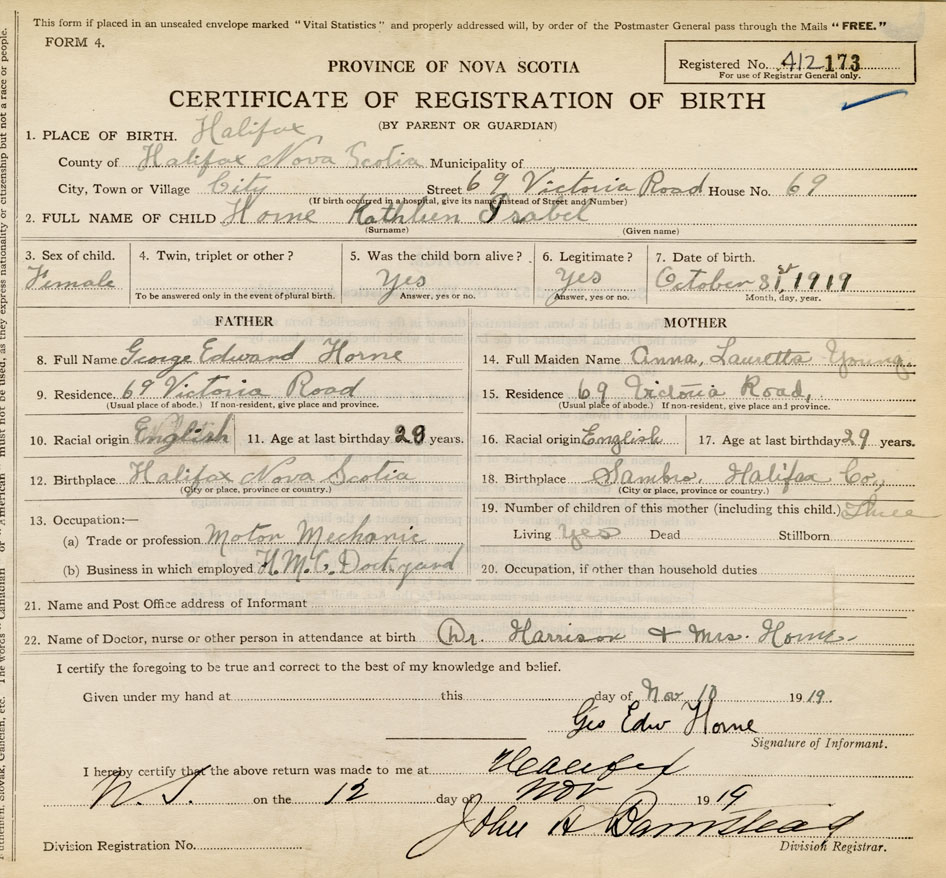 This form if placed in an unsealed envelope marked "Vital Statistics" and properly addressed will, by order of the Postmaster General pass through the Mails "FREE."
FORM 4.
Registered No. 412173
For use of Registrar General only.
PROVINCE OF NOVA SCOTIA
CERTIFICATE OF REGISTRATION OF BIRTH
(BY PARENT OR GUARDIAN)
1. PLACE OF BIRTH. Halifax
County of Halifax Nova Scotia Municipality of
City, Town or Village City Street 69 Victoria Road House No. 69
(If birth occurred in a hospital, give its name instead of Street and Number)
2. FULL NAME OF CHILD Horne Kathleen Isabel
(Surname) (Given name)
3. Sex of child. 4. Twin, triplet or other? 5. Was the child born alive? 6. Legitimate? 7. Date of birth.
Female Yes Yes October 31st, 1919
To be answered only in the event of plural birth. Answer, yes or no. Answer, yes or no. Month, day, year.
FATHER MOTHER
8. Full Name George Edward Horne 14. Full Maiden Name Anna, Lauretta Young.
9. Residence. 69 Victoria Road 15. Residence 69 Victoria Road,
(Usual place of abode.) If non-resident, give place and province. (Usual place of abode.) If non-resident, give place and province.
10. Racial origin English 11. Age at last birthday 29 years. 16. Racial origin English 17. Age at last birthday 29 years.
12. Birthplace Halifax Nova Scotia 18. Birthplace Sambro, Halifax Co,
(City or place, province or country.) (City or place, province or country.)
13. Occupation:— 19. Number of children of this mother (including this child.) Three
(a) Trade or profession Motor Mechanic Living yes Dead Stillborn
(b) Business in which employed H.M.C. Dockyard 20. Occupation, if other than household duties
21. Name and Post Office address of Informant
22. Name of Doctor, nurse or other person in attendance at birth Dr. Harrison & Mrs. Horne.
I certify the foregoing to be true and correct to the best of my knowledge and belief.
Given under my hand at this day of Nov 10 1919.
Geo Edw Horne
Signature of Informant.
I hereby certify that the above return was made to me at Halifax
N.S. on the 12 day of Nov 1919
John A Barnstead
Division Registration No. Division Registrar.
must not be used, as they express nationality or citizenship but not a race or people.